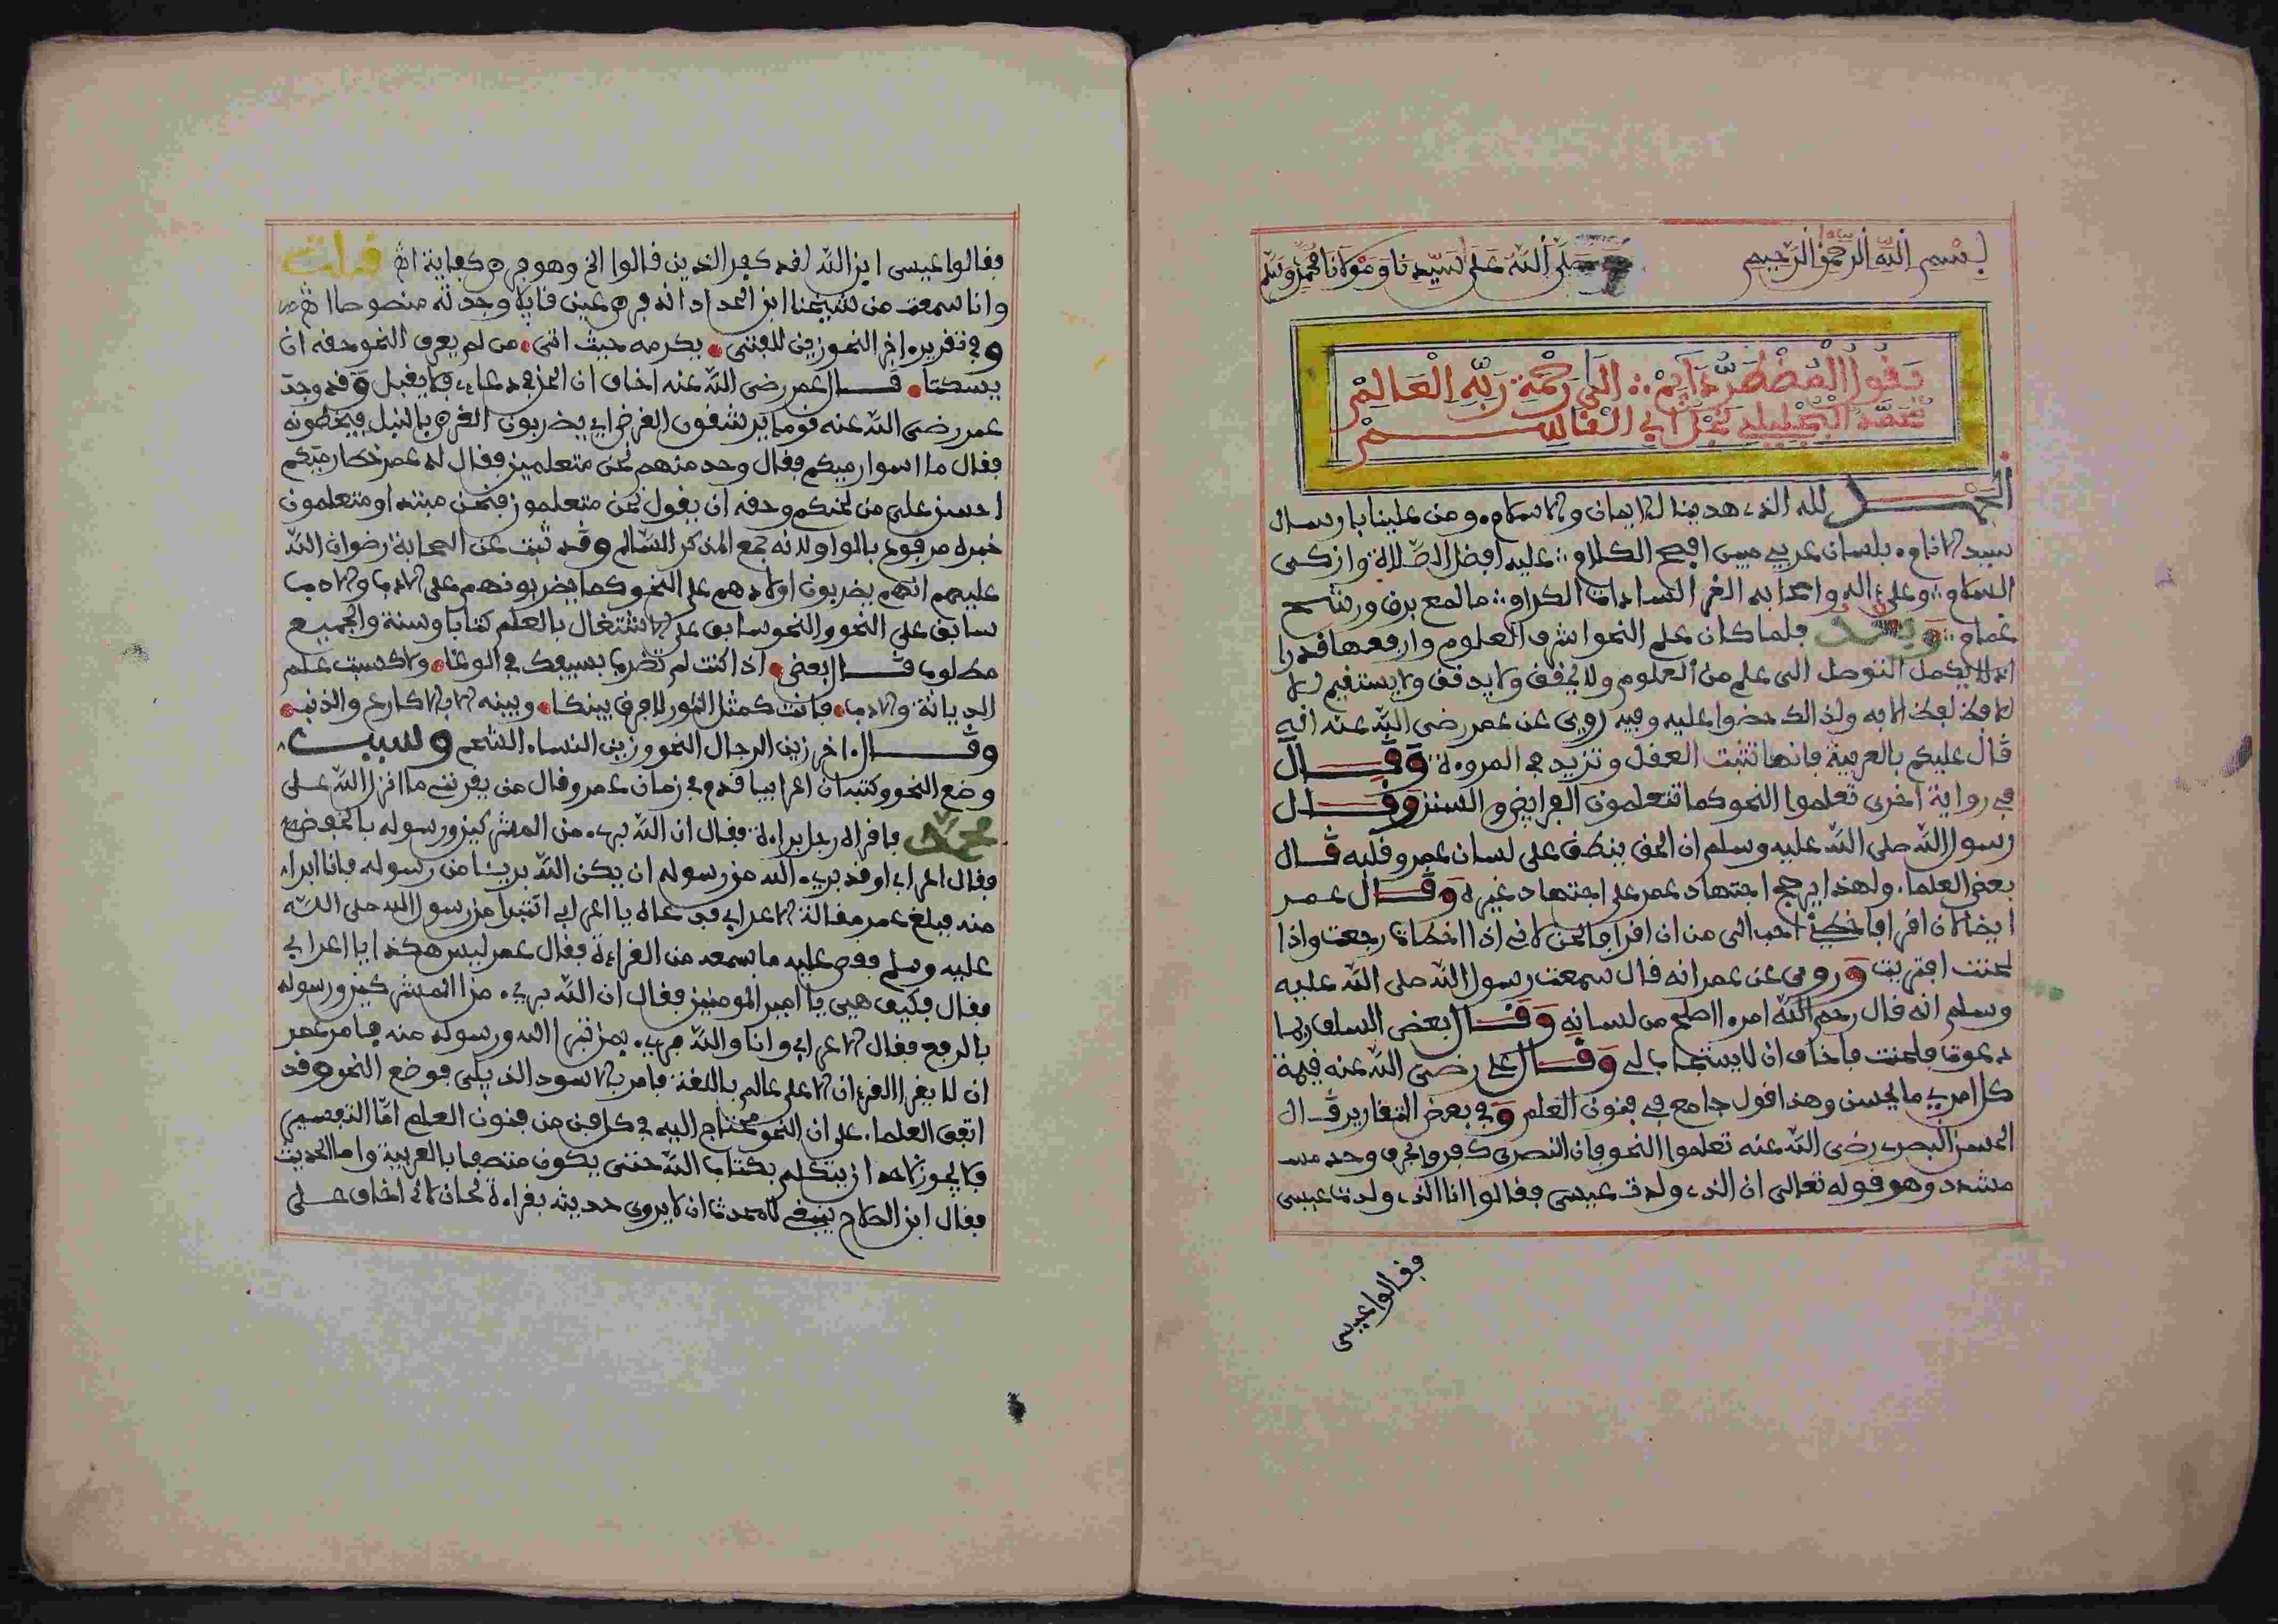 بسم الله الرحمن الرحيم صلى الله على سيدنا ومولانا محمد وسلم
يقول المضطر دايم إلى رحمة ربه العالم
عبد الجليل نجل أبي القاسم
الحمد لله الذي هدينا للايمان والاسلام ومن علينا بارسال
سيد الانام بلسان عربي مبين افصح الكلام عليه افضل الصلاة وازكى
السلام وعلى اله واصحابه الغر السادات الكرام ما لمع برق ورشح
غمام وبعد فلما كان علم النحو اشرف العلوم وارفعها قدرا
اذ لا يكمل التوصل الى علم من العلوم ولا يحقق ولا يدقق ولا يستقيم
لافظ لفظ الا به ولذالك حضوا عليه وفيه روي عن عمر رضي الله عنه انه
قال عليكم بالعربية فانها تثبت العقل وتزيد في المروءة وقال
في رواية اخرى تعلموا النحو كما تتعلمون الفرايض والسنن وقال
رسول الله صلى الله عليه وسلم ان الحق ينطق على لسان عمر وقلبه قال
بعض العلماء ولهذا يرجح اجتهاد عمر على اجتهاد غيره وقال عمر
ايضا لان اقرا فاخطئ احب الي من ان اقرا فالحن لاني اذا اخطات رجعت واذا
لحنت افتريت وروي عن عمر انه قال سمعت رسول الله صلى الله عليه
وسلم انه قال رحم الله امرءا اصلح من لسانه وقال بعض السلف ربما
دعوت فلحنت فاخاف ان لا يستجاب لي وقال علي رضي الله عنه قيمة
كل امرئ ما يحسن وهذا قول جامع في فنون العلم وفي بعض التقارير قال
الحسن البصري رضي الله عنه تعلموا النحو فان النصرى كفروا بحرف وحد
مشدد وهو قوله تعالى ان الذي ولدت عيسى فقالوا انا الذي ولدت عيسى
فقالوا عيسى
فقالوا عيسى ابن الله لقد كفر الذين قالوا الخ وهو في كفاية اه قلت
وانا سمعت من شيخنا ابن الحداد انه في عين قايلا وجدته منصوصا اه
وفي تقريره اخر النحو زين للفتى يكرمه حيث اتى من لم يعرف النحو حقه ان
يسكتا قال عمر رضي الله عنه اخاف ان الحن في دعاء فلا يقبل وقد وجد
عمر رضي الله عنه قوما يرشقون الغرض اي يضربون الغرض بالنبل فيخطونه
فقال ما اسوا رميكم فقال وحد منهم نحن متعلمين فقال له عمر خطا رميكم
احسن علي من لحنكم وحقه ان يقول نحن متعلمون فنحن مبتدا ومتعلمون
خبره مرفوع بالواو لانه جمع المذكر السالم وقد ثبت عن الصحابة رضوان الله
عليهم انهم يضربون اولادهم على النحو كما يضربونهم على الادب والادب
سابق على النحو والنحو سابق على الاشتغال بالعلم كتابا وسنة والجميع
مطلوب قال بعض اذا كنت لم تضرب بسيفك في الوغا ولا كسبت علم
الديانة والادب فانت كمثل الثور لا فرق بينكا وبينه الا بالاكارع والذنب
وقال اخر زين الرجال النحو وزين النساء الشحم وسبب
وضع النحو وكتبه ان اعرابيا قدم في زمان عمر وقال من يقرئني ما انزل الله على
محمد فاقراه رجل براءة فقال ان الله بريء من المشركين ورسوله بالخفض
فقال الاعرابي اوقد بريء الله من رسوله ان يكن الله بريئا من رسوله فانا ابرا
منه فبلغ عمر مقالة الاعرابي فدعاه يا اعرابي اتتبرا من رسول الله صلى الله
عليه وسلم فقص عليه ما سمعه من القراءة فقال عمر ليس هكذا يا اعرابي
فقال فكيف هي يا امير المومنين فقال ان الله بريء من المشركين ورسوله
بالرفع فقال الاعرابي وانا والله بريء ممن تبرا الله ورسوله منه فامر عمر
ان لا يقرا القرءان الا على عالم باللغة فامر بالاسود الديلي فوضع النحو وقد
اتفق العلماء على ان النحو محتاج اليه في كل فن من فنون العلم اما التفسير
فلا يجوز لاحد ان يتكلم بكتاب الله حتى يكون متصفا بالعربية واما الحديث
فقال ابن الصلاح ينبغي للمحدث ان لا يروي حديثه بقراءة لحان لاني اخاف على